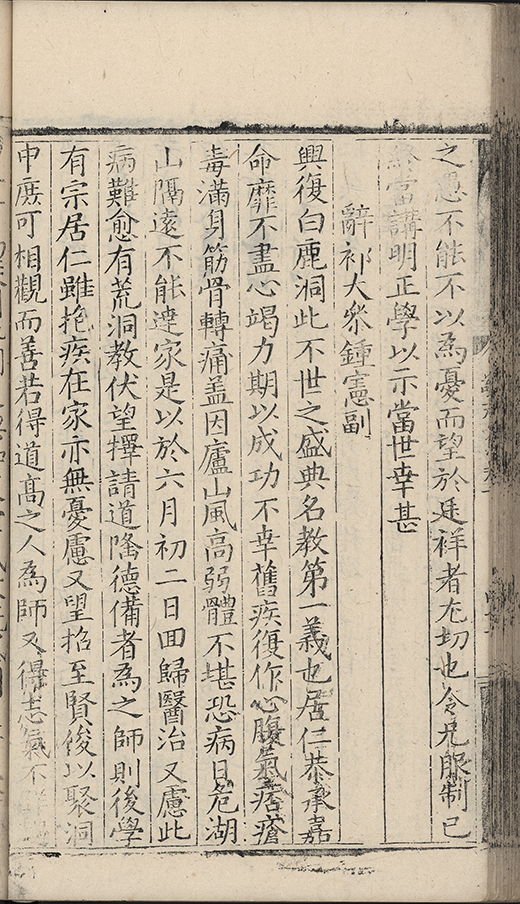 之愚不能不以為憂而望於廷祥者尢切也令兄服制已
終當講明正學以示當世幸甚
辭祁大叅鍾憲副
興復白鹿洞此不世之盛典名教第一義也居仁恭承嘉
命靡不盡心竭力期以成功不幸舊疾復作心腹氣痞瘡
毒滿身筋骨轉痛盖因廬山風高弱體不堪恐病日危湖
山隔遠不能達家是以於六月初二日囬歸醫治又慮此
病難愈有荒洞教伏望擇請道隆德備者為之師則後學
有宗居仁雖抱疾在家亦無憂慮又望招至賢俊以聚洞
中庶可相觀而善若得道高之人為師又得志氣不